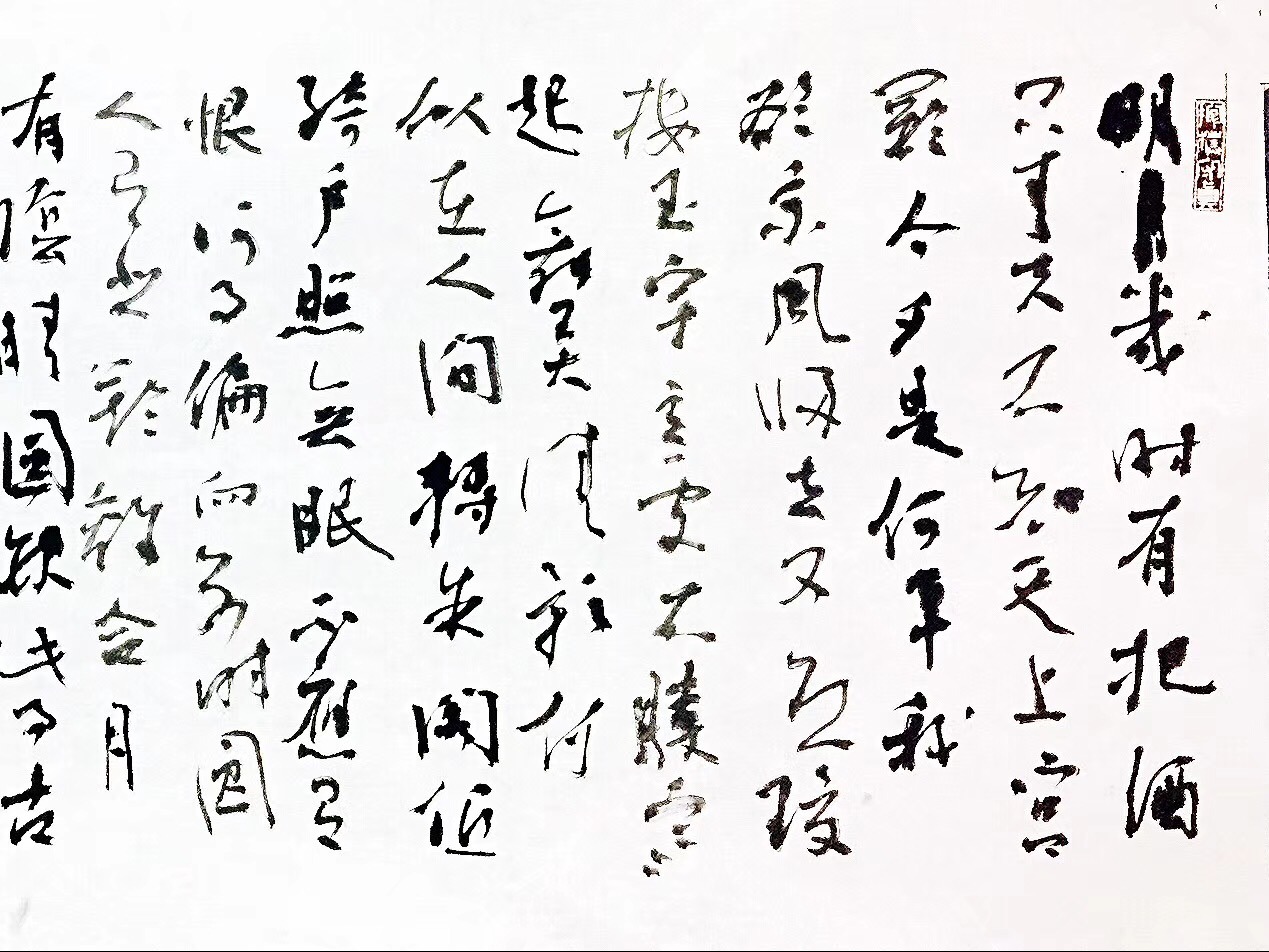 明月幾时有把酒
问青天不知天上宫
闕今夕是何年我
欲乘风归去又恐瓊
楼玉宇高处不勝寒
起舞弄清影何
似在人间轉朱阁低
绮户照无眠不應有
恨何事偏向别时圆
人有悲歡離合月
有陰晴圆缺此事古